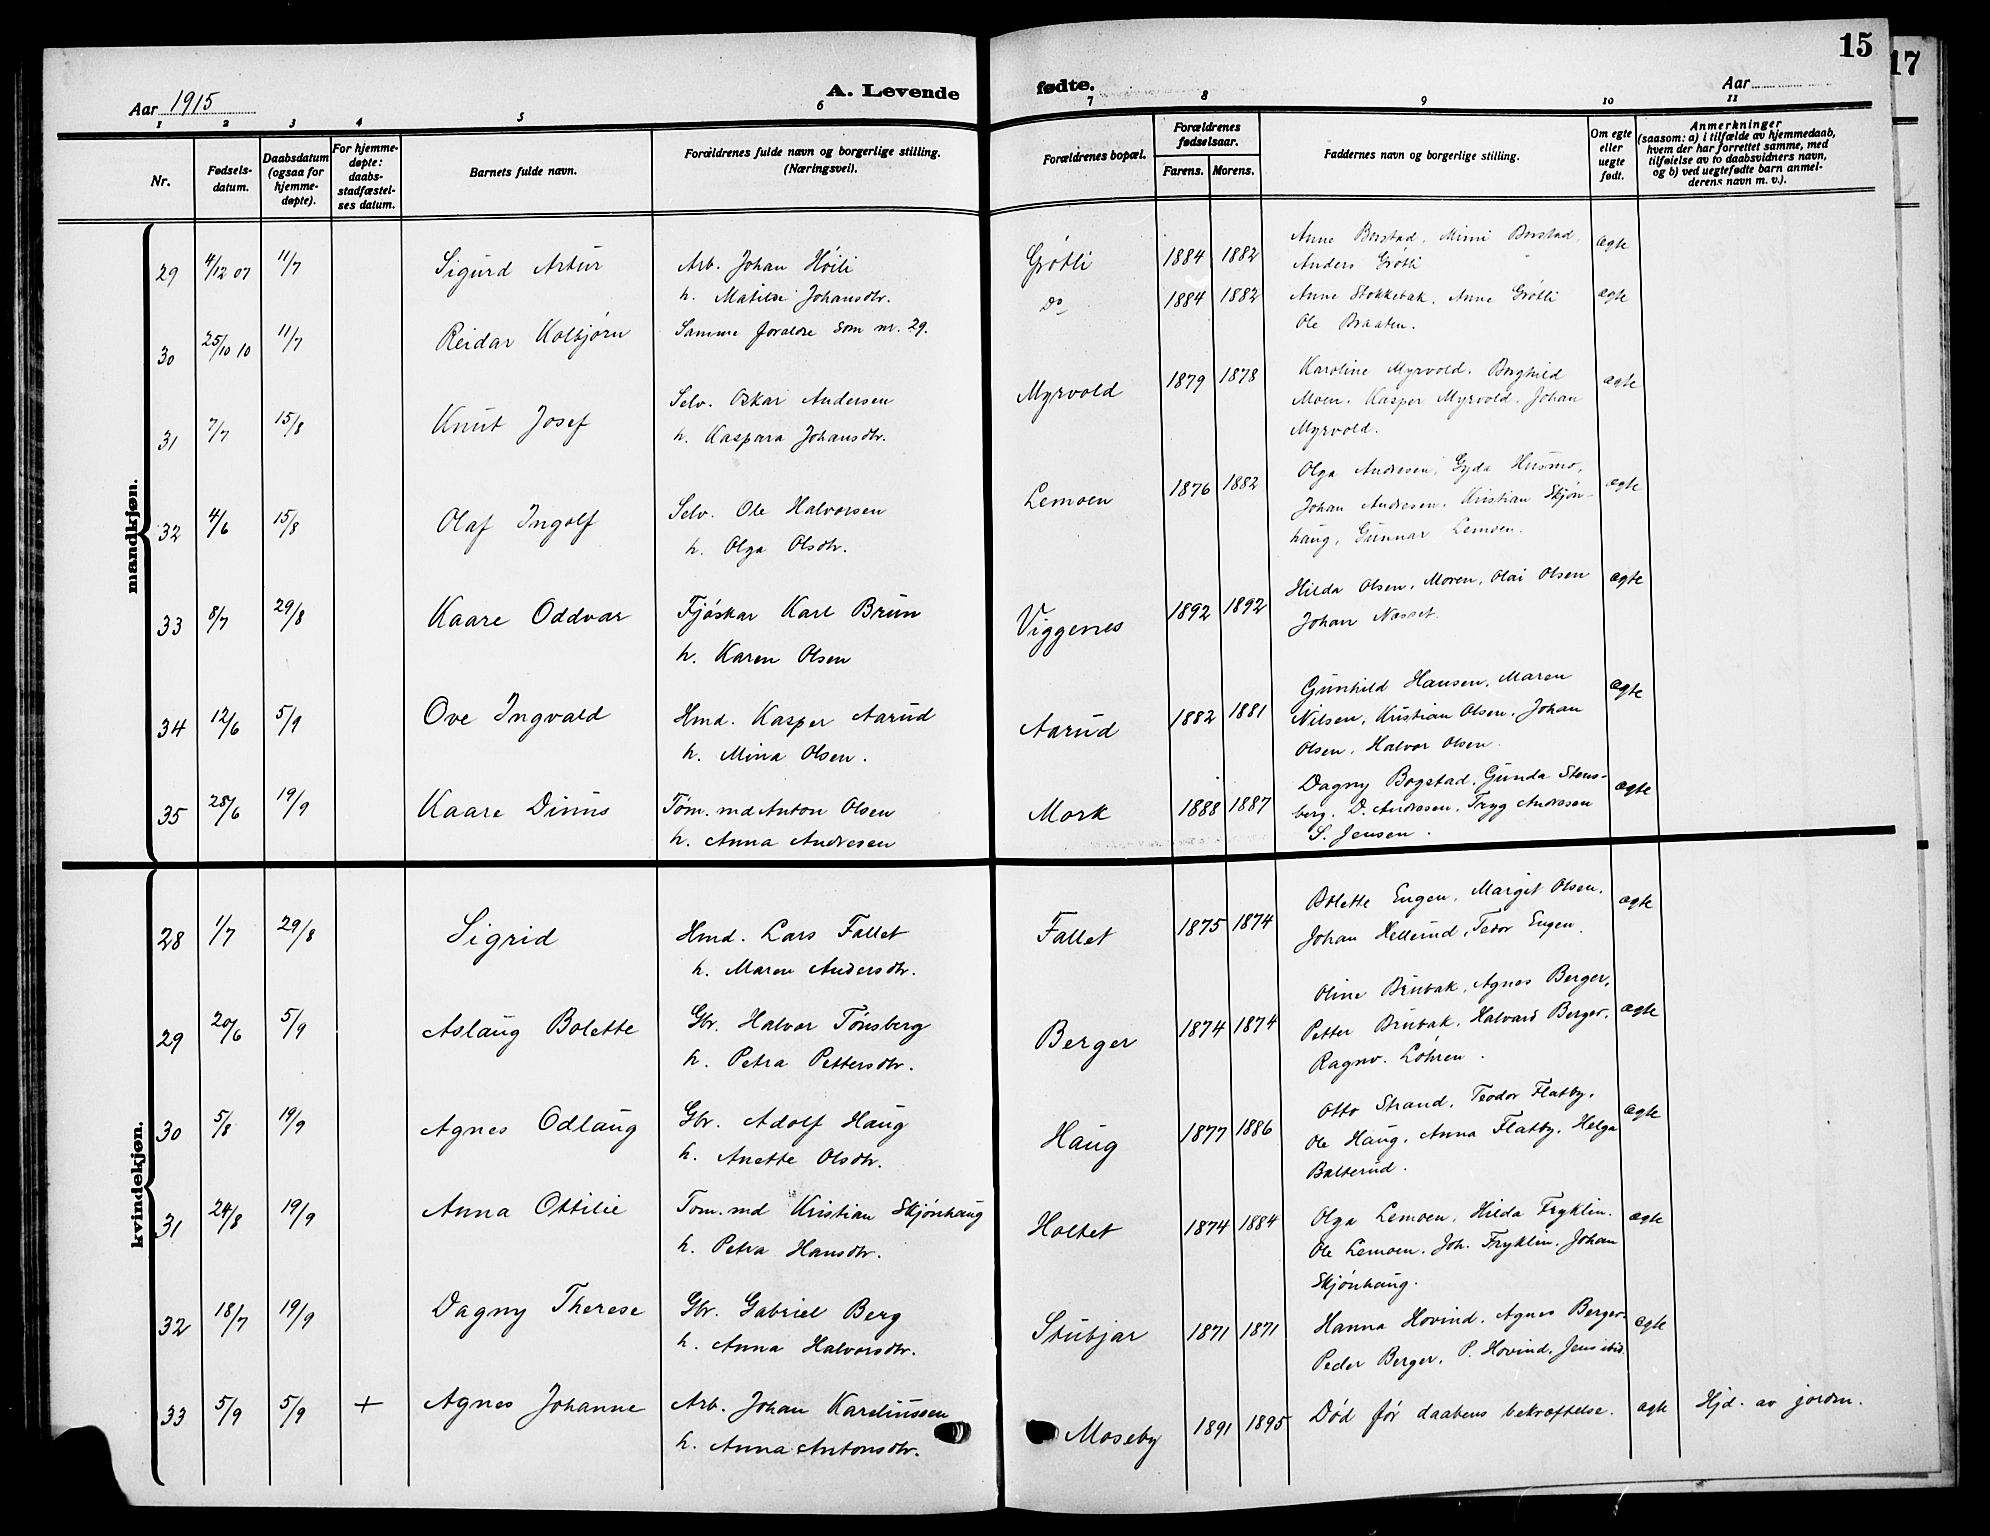 15
17
Aar 1915
A. Levende
fødte.
Aar
1 2 3 4 5 6 7 8 9 10 11
Nr.
Fødsels-
datum.
Daabsdatum
(ogsaa for
hjemme-
døpte).
For hjemme-
døpte:
daabs-
stadfæstel-
ses datum.
Barnets fulde navn.
Forældrenes fulde navn og borgerlige stilling.
(Næringsvei).
Forældrenes bopæl.
Forældrenes
fødselsaar.
Farens. Morens.
Faddernes navn og borgerlige stilling.
Om egte
eller
uegte
født.
Anmerkninger
(saasom: a) i tilfælde av hjemmedaab,
hvem der har forrettet samme, med
tilføielse av to daabsvidners navn,
og b) ved uegtefødte barn anmel-
derens navn m. v.).
mandkjøn.
29 4/12 07 11/7 Sigurd Artur Arb. Johan Høili Grøtli 1884 1882 Anne Borstad, Mimi Borstad, ægte
h. Matilde Johansdtr. Anders Grøtli
30 25/10 10 11/7 Reidar Kolbjørn Samme foraldre som nr. 29. Do 1884 1882 Anne Stokkebak, Anne Grøtli ægte
Ole Braaten.
31 7/7 15/8 Knut Josef Selv. Oskar Andersen Myrvold 1879 1878 Karoline Myrvold, Borghild ægte
h. Kaspara Johansdtr. Moen, Kasper Myrvold, Johan
Myrvold.
32 4/6 15/8 Olaf Ingolf Selv. Ole Halvorsen Lemoen 1876 1882 Olga Andresen, Gyda Husmo, ægte
h. Olga Olsdtr. Johan Andresen, Kristian Skjøn-
haug, Gunnar Lemoen.
33 8/7 29/8 Kaare Oddvar Fjøskar Karl Brun Viggenes 1892 1892 Hilda Olsen, Moren, Olai Olsen ægte
h. Karen Olsen Johan Næsset.
34 12/6 5/9 Ove Ingvald Hmd. Kasper Aarud Aarud 1882 1881 Gunhild Hansen, Maren ægte
h. Mina Olsen. Nilsen, Kristian Olsen, Johan
Olsen, Halvor Olsen.
35 28/6 19/9 Kaare Dinus Tøm.md Anton Olsen Mork 1888 1887 Dagny Bogstad, Gunda Stens- ægte
h. Anna Andresen berg, D. Andresen, Tryg Andresen
S. Jensen.
kvindekjøn.
28 1/7 29/8 Sigrid Hmd. Lars Fallet Fallet 1875 1874 Bolette Engen, Margit Olsen, ægte
h. Maren Andersdtr. Johan Hellerud, Tedor Engen.
29 20/6 5/9 Aslaug Bolette Gbr. Halvor Tønsberg Berger 1874 1874 Oline Brubak, Agnes Berger, ægte
h. Petra Pettersdtr. Petter Brubak, Halvard Berger,
Ragnv. Løhren.
30 5/8 19/9 Agnes Odlaug Gbr. Adolf Haug Haug 1877 1886 Otto Strand, Teodor Flatby, ægte
h. Anette Olsdtr. Ole Haug, Anna Flatby, Helga
Balterud.
31 24/8 19/9 Anna Ottilie Tøm.md Kristian Skjønhaug Holtet 1874 1884 Olga Lemoen, Hilda Fryklin. ægte
h. Petra Hansdtr. Ole Lemoen, Joh. Fryklin, Johan
Skjønhaug.
32 18/7 19/9 Dagny Therese Gbr. Gabriel Berg Stubjar 1871 1871 Hanna Hovind, Agnes Berger, ægte
h. Anna Halvorsdtr. Peder Berger, P. Hovind, Jens ibid.
33 5/9 5/9 + Agnes Johanne Arb. Johan Kareliussen Moseby 1891 1895 Død før daabens bekræftelse. ægte Hjd. av jordm.
h. Anna Antonsdtr.